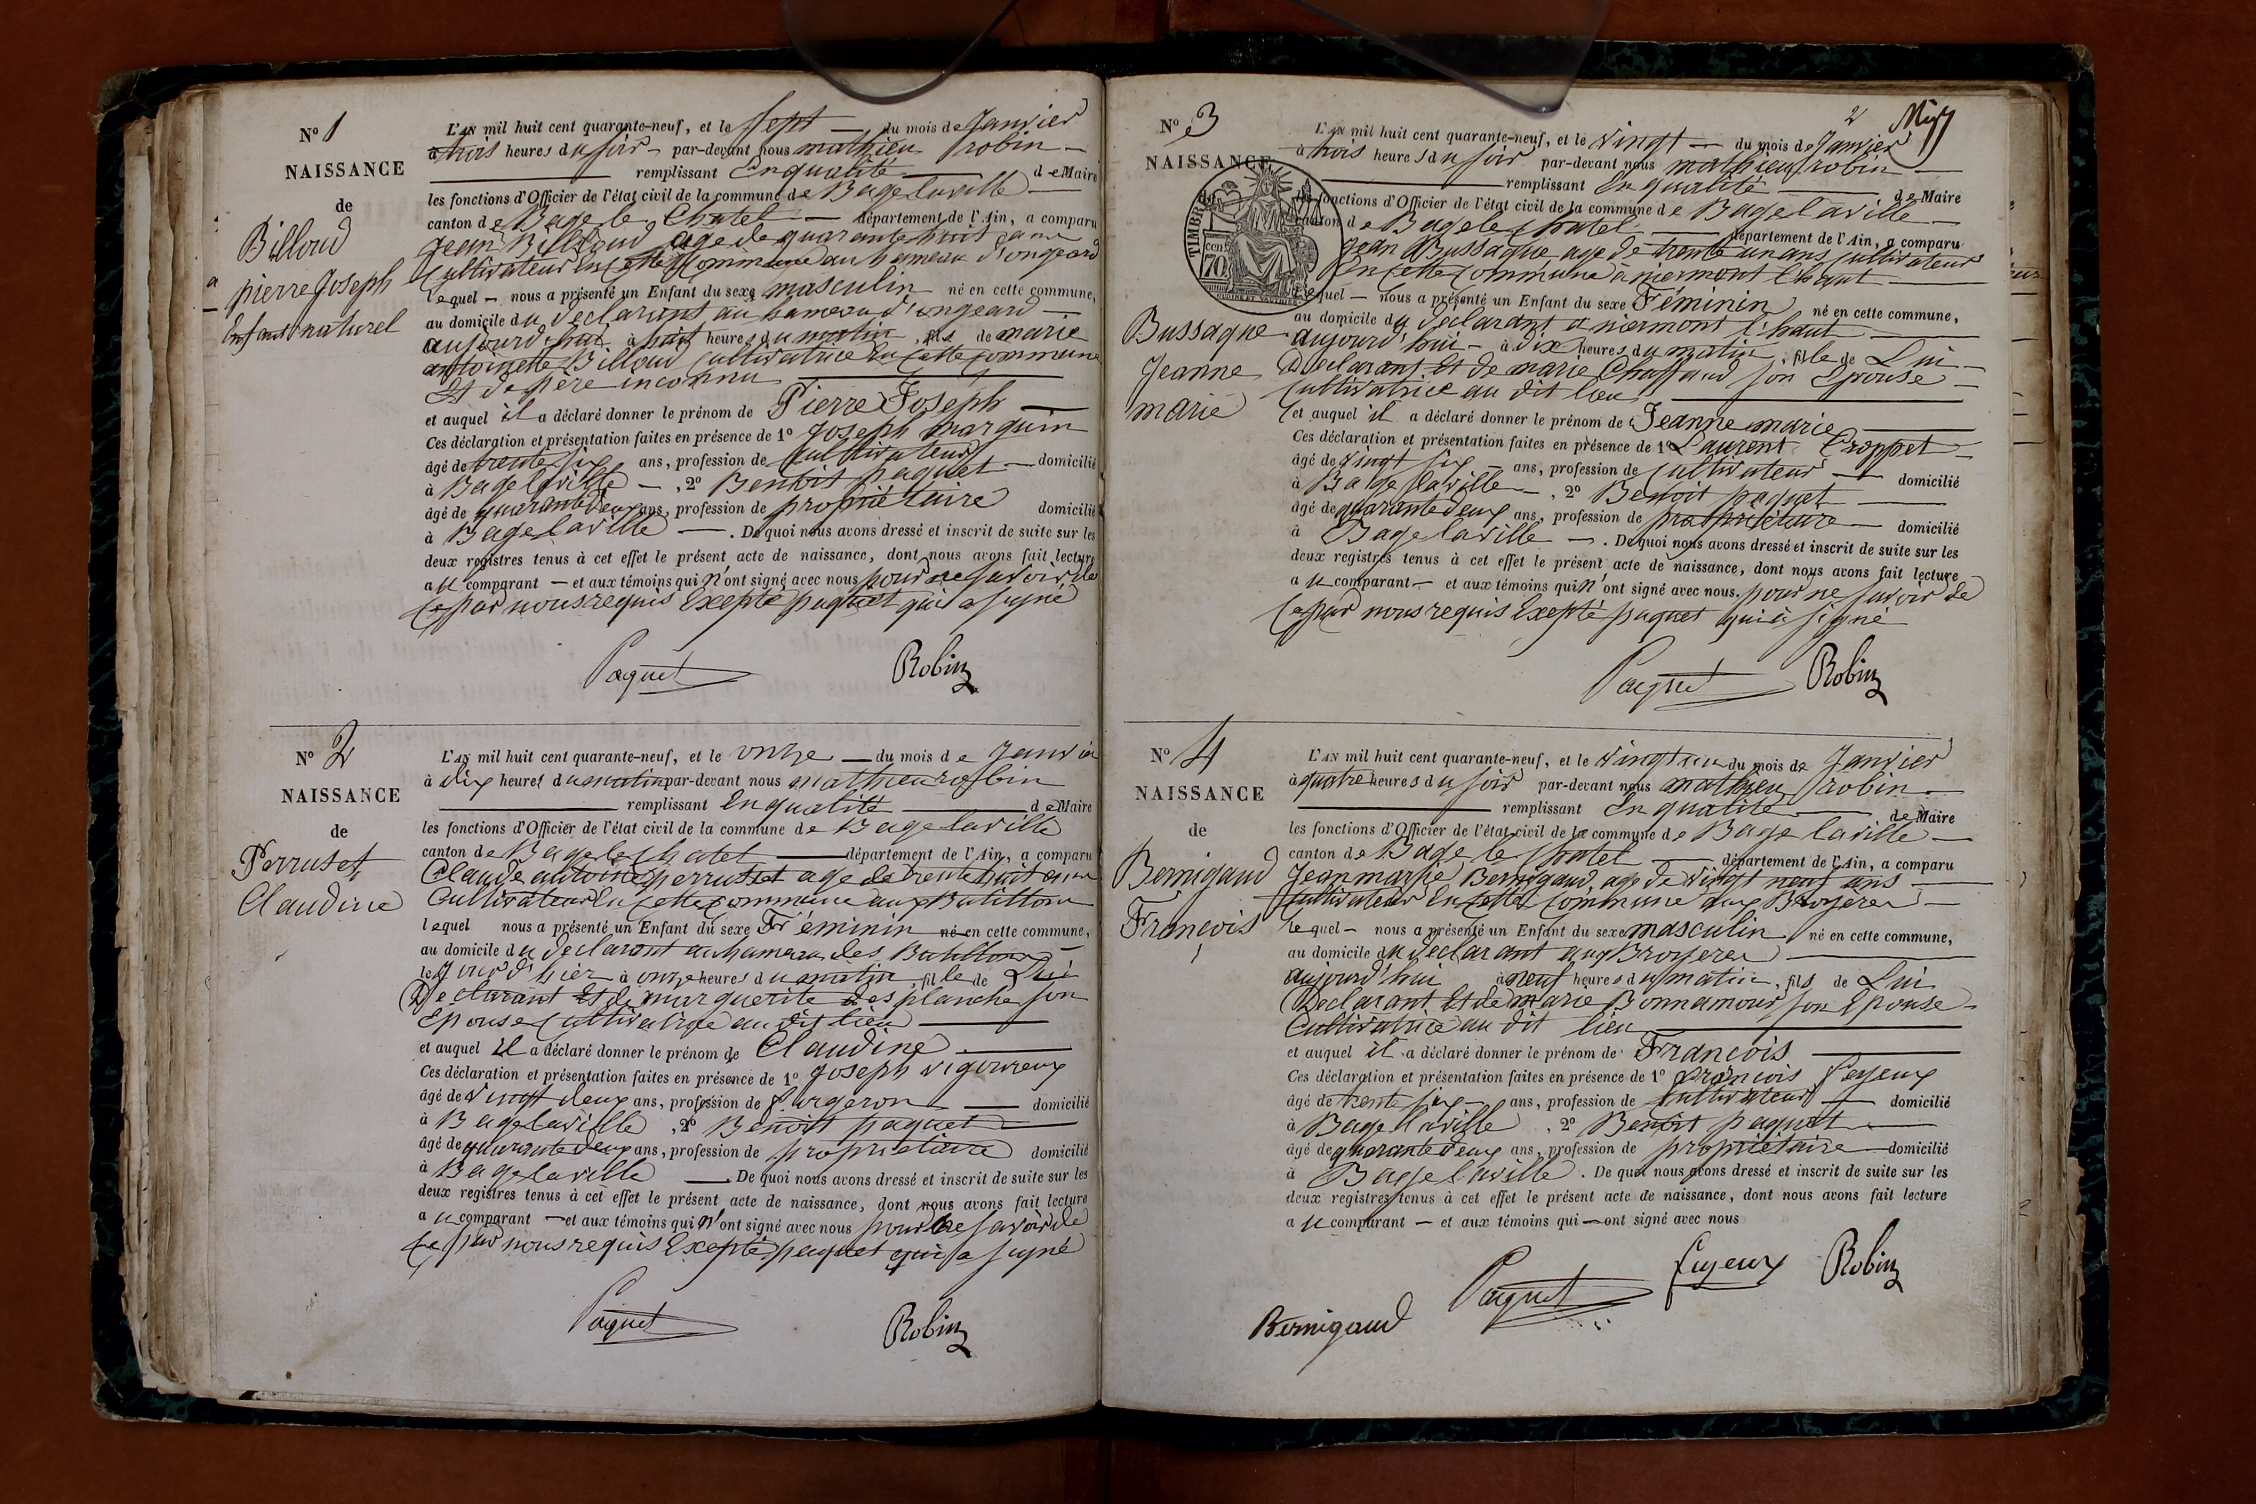 N° 1
NAISSANCE
de
Billoud
pierre Joseph
Enfant naturel
L'AN mil huit cent quarante-neuf, et le Sept du mois de Janvier
à trois heures du soir par-devant nous mathieu robin
remplissant En qualité de Maire
les fonctions d'Officier de l'état civil de la commune de Bage la ville
canton de Bage le Chatel département de l'Ain, a comparu
Jean Billoud age de quarante huit ans
Cultivateur En cette Commune au hameau d'ongeard
lequel nous a présenté un Enfant du sexe masculin né en cette commune,
au domicile du declarant au hameau d'ongeard
aujourd'hui à huit heures du matin, fils de marie
antoinette Billoud cultivatrice En cette commune
Et de père inconnu
et auquel il a déclaré donner le prénom de Pierre Joseph
Ces déclaration et présentation faites en présence de 1° Joseph marguin
âgé de trente six ans, profession de Cultivateur domicilié
à Bage la ville, 2° Benoit paquet
âgé de quarante deux ans, profession de propriétaire domicilié
à Bage la ville. De quoi nous avons dressé et inscrit de suite sur les
deux registres tenus à cet effet le présent acte de naissance, dont nous avons fait lecture
au comparant et aux témoins qui n'ont signé avec nous pour ne savoir de
ce par nous requis Excepté paquet qui a signé
Paquet Robin
N° 2
NAISSANCE
de
Perruset
Claudine
L'AN mil huit cent quarante-neuf, et le onze du mois de Janvier
à dix heures du matin par-devant nous mathieu robin
remplissant En qualité de Maire
les fonctions d'Officier de l'état civil de la commune de Bage la ville
canton de Bage le Chatel département de l'Ain, a comparu
Claude antoine perrusset age de trente huit ans
Cultivateur En cette commune aux
lequel nous a présenté un Enfant du sexe Féminin né en cette commune,
au domicile du declarant au hameau des
le Jour d'hier à onze heures du matin, fille de Lui
Declarant Et de marguerite desplanche son
Epouse Cultivatrice au dit lieu
et auquel il a déclaré donner le prénom de Claudine
Ces déclaration et présentation faites en présence de 1° Joseph vigoureux
âgé de vingt deux ans, profession de forgeron domicilié
à Bage la ville, 2° Benoit paquet
âgé de quarante deux ans, profession de propriétaire domicilié
à Bage la ville. De quoi nous avons dressé et inscrit de suite sur les
deux registres tenus à cet effet le présent acte de naissance, dont nous avons fait lecture
au comparant et aux témoins qui n'ont signé avec nous pour ne savoir de
ce par nous requis Excepté paquet qui a signé
Paquet Robin
2
N° 3
NAISSANCE
de
TIMBRE
70 cen
Bussaque
Jeanne
marie
L'AN mil huit cent quarante-neuf, et le vingt du mois de Janvier
à trois heures du soir par-devant nous mathieu robin
remplissant En qualité de Maire
les fonctions d'Officier de l'état civil de la commune de Bage la ville
canton de Bage le Chatel département de l'Ain, a comparu
Jean Bussaque age de trente un ans cultivateur
En cette Commune a niermont l'haut
lequel nous a présenté un Enfant du sexe Féminin né en cette commune,
au domicile du declarant a niermont l'haut
aujourd'hui à dix heures du matin, fille de Lui
Declarant Et de marie Chaffaud son Epouse
cultivatrice au dit lieu
et auquel il a déclaré donner le prénom de Jeanne marie
Ces déclaration et présentation faites en présence de 1° Laurent Croppet
âgé de vingt six ans, profession de Cultivateur domicilié
à Bage la ville, 2° Benoit paquet
âgé de quarante deux ans, profession de propriétaire domicilié
à Bage la ville. De quoi nous avons dressé et inscrit de suite sur les
deux registres tenus à cet effet le présent acte de naissance, dont nous avons fait lecture
au comparant et aux témoins qui n'ont signé avec nous. pour ne savoir de
ce par nous requis Excepté paquet qui a signé
Paquet Robin
N° 4
NAISSANCE
de
Bernigaud
François
L'AN mil huit cent quarante-neuf, et le vingt un du mois de Janvier
à quatre heures du soir par-devant nous mathieu robin
remplissant En qualité de Maire
les fonctions d'Officier de l'état civil de la commune de Bage la ville
canton de Bage le Chatel département de l'Ain, a comparu
Jean marie Bernigaud, age de vingt neuf ans
Cultivateur En cette Commune aux Broyeres
lequel nous a présenté un Enfant du sexe masculin né en cette commune,
au domicile du declarant aux Broyeres
aujourd'hui à neuf heures du matin, fils de Lui
Declarant Et de marie Bonnamour son Epouse
Cultivatrice au dit lieu
et auquel il a déclaré donner le prénom de François
Ces déclaration et présentation faites en présence de 1° François feyeux
âgé de trente six ans, profession de Cultivateur domicilié
à Bage la ville, 2° Benoit paquet
âgé de quarante deux ans, profession de propriétaire domicilié
à Bage la ville. De quoi nous avons dressé et inscrit de suite sur les
deux registres tenus à cet effet le présent acte de naissance, dont nous avons fait lecture
au comparant et aux témoins qui ont signé avec nous
Bernigaud Paquet feyeux Robin